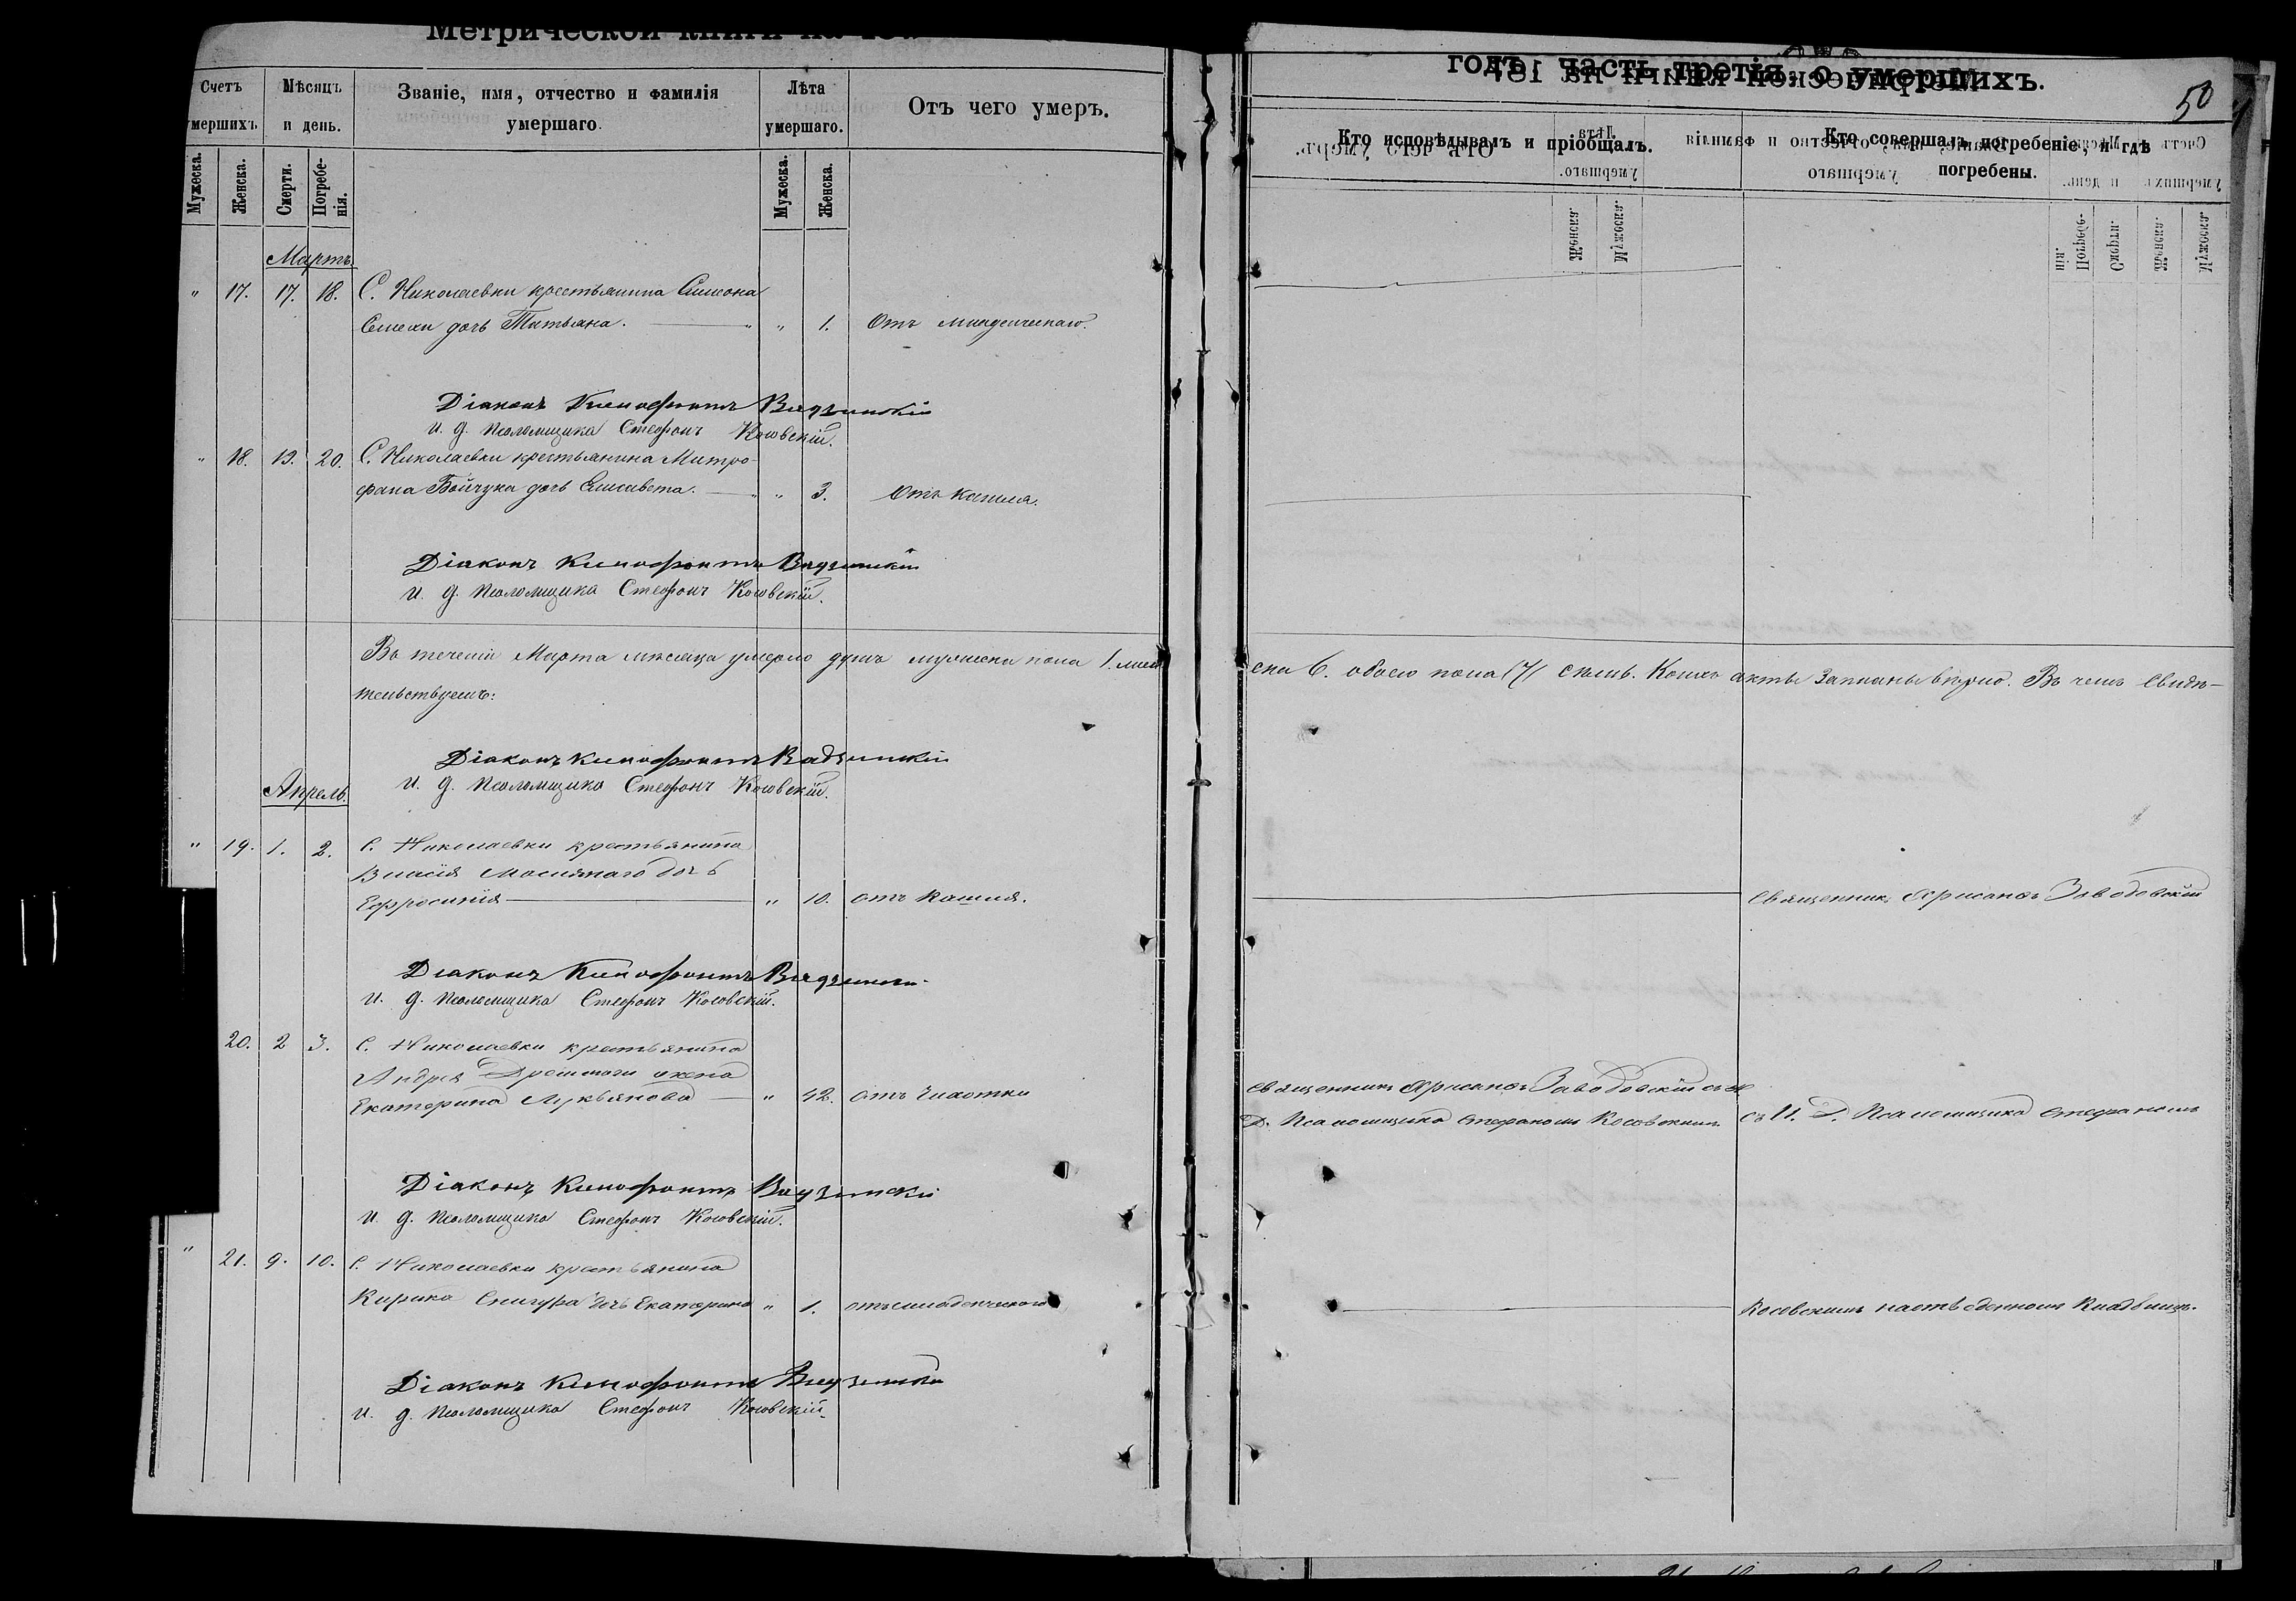 Метрической книги на
Счетъ умершихъ.
Мѣсяцъ и день.
Званіе, имя, отчество и фамилія умершаго.
Лѣта умершаго.
Отъ чего умеръ.
Мужеска.
Женска.
Смерти.
Погребенія.
Мужеска.
Женска.
Мартъ.
" 17. 17. 18. С. Николаевки крестьянина Симеона
дочь Татьяна. " 1. Отъ младенческаго.
Діаконъ Ксенофонтъ Вадзинскій
и. д. псаломщика Стефанъ Косовскій.
" 18. 19. 20. С. Николаевки крестьянина Митро-
фана Бойчука дочь Елисавета. " 3. Отъ кашля.
Діаконъ Ксенофонтъ Вадзинскій
и. д. псаломщика Стефанъ Косовскій.
Въ теченіи Марта мѣсяца умерло душъ мужеска пола 1. жен
тельствуемъ:
Діаконъ Ксенофонтъ Вадзинскій
и. д. псаломщика Стефанъ Косовскій.
Апрель.
" 19. 1. 2. С. Николаевки крестьянина
Власія дочь
Ефросинія " 10. отъ кашля.
Діаконъ Ксенофонтъ Вадзинскій
и. д. псаломщика Стефанъ Косовскій.
20. 2 3. С. Николаевки крестьянина
Андрея жена
Екатерина Лукьянова " 42. отъ чахотки
Діаконъ Ксенофонтъ Вадзинскій
и. д. псаломщика Стефанъ Косовскій.
" 21. 9. 10. С. Николаевки крестьянина
Кирика Снигура дочь Екатерина " 1. отъ младенческаго
Діаконъ Ксенофонтъ Вадзинскій
и. д. псаломщика Стефанъ Косовскій.
годъ, часть третія, о умершихъ.
50
Кто исповѣдывалъ и пріобщалъ.
Кто совершалъ погребеніе, и гдѣ погребены.
ска 6. обоего пола (7) семь. Коихъ акты записаны вѣрно. Въ чемъ свидѣ-
Священникъ Заводовскій
Священникъ Заводовскій съ И.
Д. Псаломщика Стефаномъ Косовскимъ
съ И. Д. Псаломщика Стефаномъ
Косовскимъ кладбищѣ.